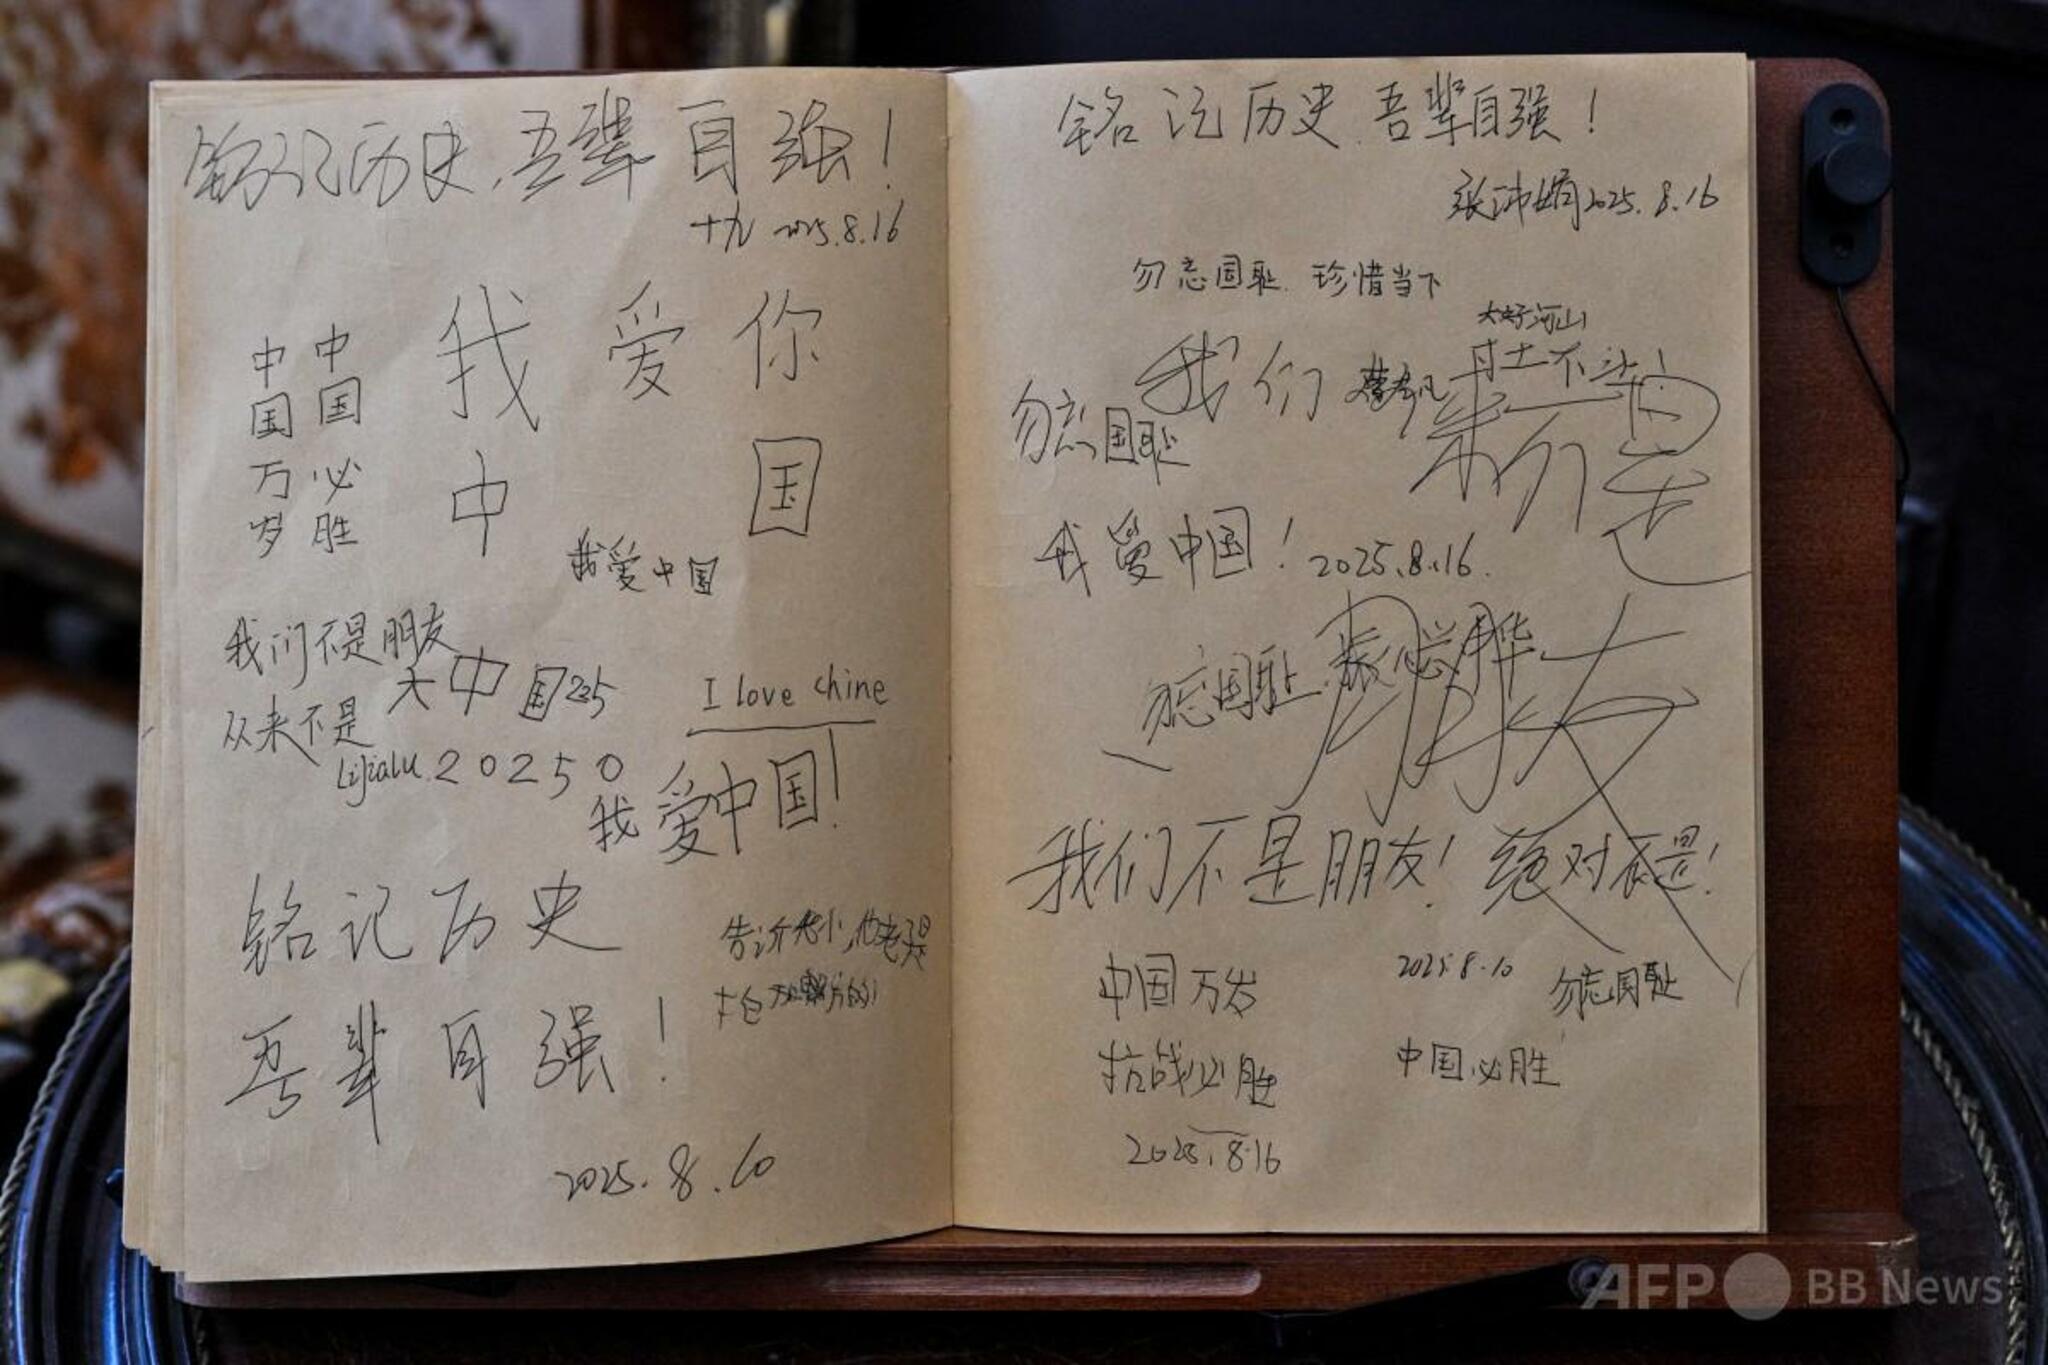 铭记历史,吾辈自强!
十九 2025.8.16
我爱你
中国
中国必胜
中国万岁
我爱中国
我们不是朋友
从来不是
大中国225
I love chine
Lijialu 202508
我爱中国!
铭记历史
吾辈自强!
2025.8.10
铭记历史 吾辈自强!
张沛娟 2025.8.16
勿忘国耻 珍惜当下
大好河山
寸土不让!
我们
勿忘国耻
我爱中国! 2025.8.16.
勿忘国耻
朋友
我们不是朋友! 绝对不是!
中国万岁
抗战必胜
2025.8.16
2025.8.10
勿忘国耻
中国必胜
AFP BB News